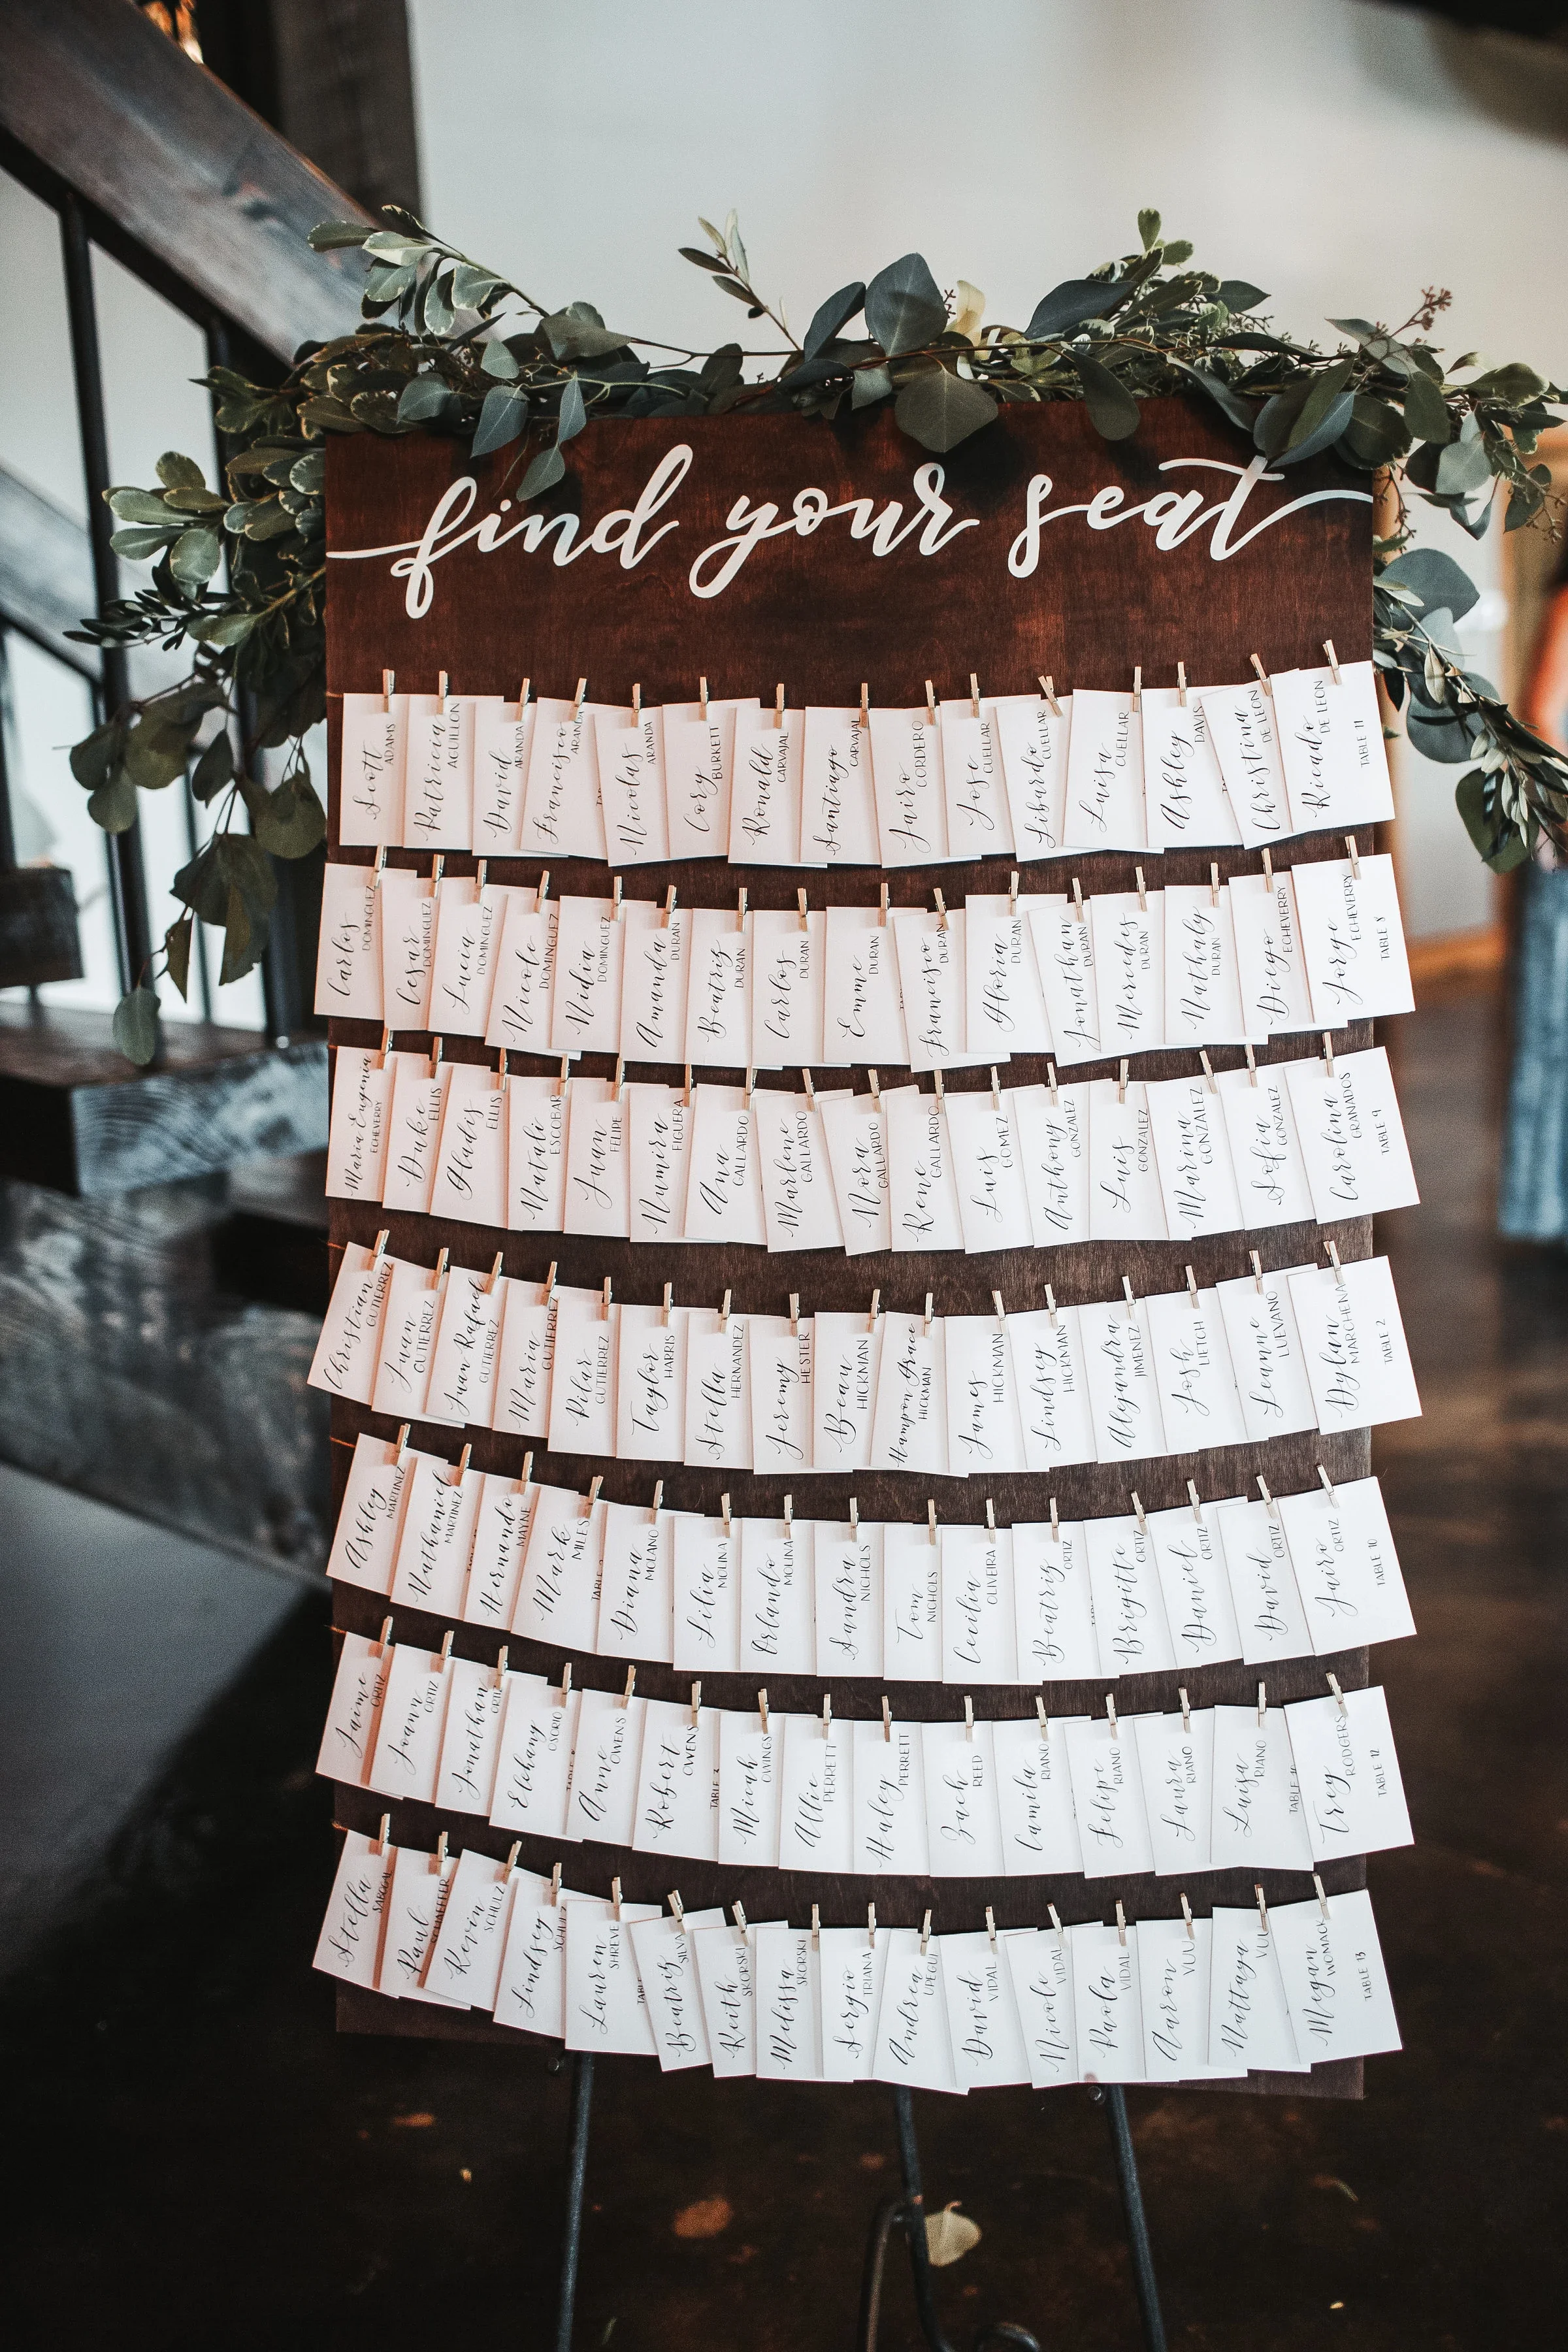 find your seat
Scott
ADAMS
Patricia
AGUILLON
David
ARANDA
Francisco
ARANDA
Nicolas
ARANDA
Cory
BURKETT
Ronald
CARVAJAL
Santiago
CARVAJAL
Jairo
CORDERO
Jose
CUELLAR
Libardo
CUELLAR
Luisa
CUELLAR
Ashley
DAVIS
Christina
DE LEON
Ricardo
DE LEON
TABLE 11
Carlos
DOMINGUEZ
Cesar
DOMINGUEZ
Lucia
DOMINGUEZ
Nicole
DOMINGUEZ
Nidia
DOMINGUEZ
Amanda
DURAN
Beatriz
DURAN
Carlos
DURAN
Emme
DURAN
Francisco
DURAN
Gloria
DURAN
Jonathan
DURAN
Mercedes
DURAN
Nathaly
DURAN
Diego
ECHEVERRY
Jorge
ECHEVERRY
TABLE 8
Maria Eugenia
ECHEVERRY
Duke
ELLIS
Gladis
ELLIS
Natali
ESCOBAR
Juan
FELIPE
Numira
FIGUERA
Ana
GALLARDO
Marlene
GALLARDO
Nora
GALLARDO
Rene
GALLARDO
Luis
GOMEZ
Anthony
GONZALEZ
Luis
GONZALEZ
Marina
GONZALEZ
Sofia
GONZALEZ
Carolina
GRANADOS
TABLE 9
Christian
GUTIERREZ
Juan
GUTIERREZ
Juan Rafael
GUTIERREZ
Maria
GUTIERREZ
Pilar
GUTIERREZ
Taylor
HARRIS
Stella
HERNANDEZ
Jeremy
HESTER
Beau
HICKMAN
Hampon Grace
HICKMAN
James
HICKMAN
Lindsey
HICKMAN
Alejandra
JIMENEZ
Josh
LIETCH
Leanne
LUEVANO
Dylan
MARCHENA
TABLE 2
Ashley
MARTINEZ
Nathaniel
MARTINEZ
Hernando
MAYNE
Mark
MILES
TABLE
Diana
MOLANO
Lilia
MOLINA
Orlando
MOLINA
Sandra
NICHOLS
Tom
NICHOLS
Cecilia
OLIVEIRA
Beatriz
ORTIZ
Brigitte
ORTIZ
Daniel
ORTIZ
David
ORTIZ
Jairo
ORTIZ
TABLE 10
Jaime
ORTIZ
Joann
ORTIZ
Jonathan
ORTIZ
Elehany
OSORIO
Anne
OWENS
Robert
OWENS
TABLE 3
Micah
OWINGS
Allie
PERRETT
Haley
PERRETT
Zach
REED
Camila
RIANO
Felipe
RIANO
Laura
RIANO
Luisa
RIANO
TABLE
Trey
RODGERS
TABLE 12
Stella
Paul
SCHAEFFER
Kevin
SCHULZ
Lindsey
SCHULZ
Lauren
SHREVE
TABLE
Beatriz
SILVA
Keith
SKORSKI
Melissa
SKORSKI
Sergio
TRIANA
Andrea
UPEGUI
David
VIDAL
Nicole
VIDAL
Paola
VIDAL
Aaron
VUU
Nattaya
VUU
Megan
WOMACK
TABLE 13